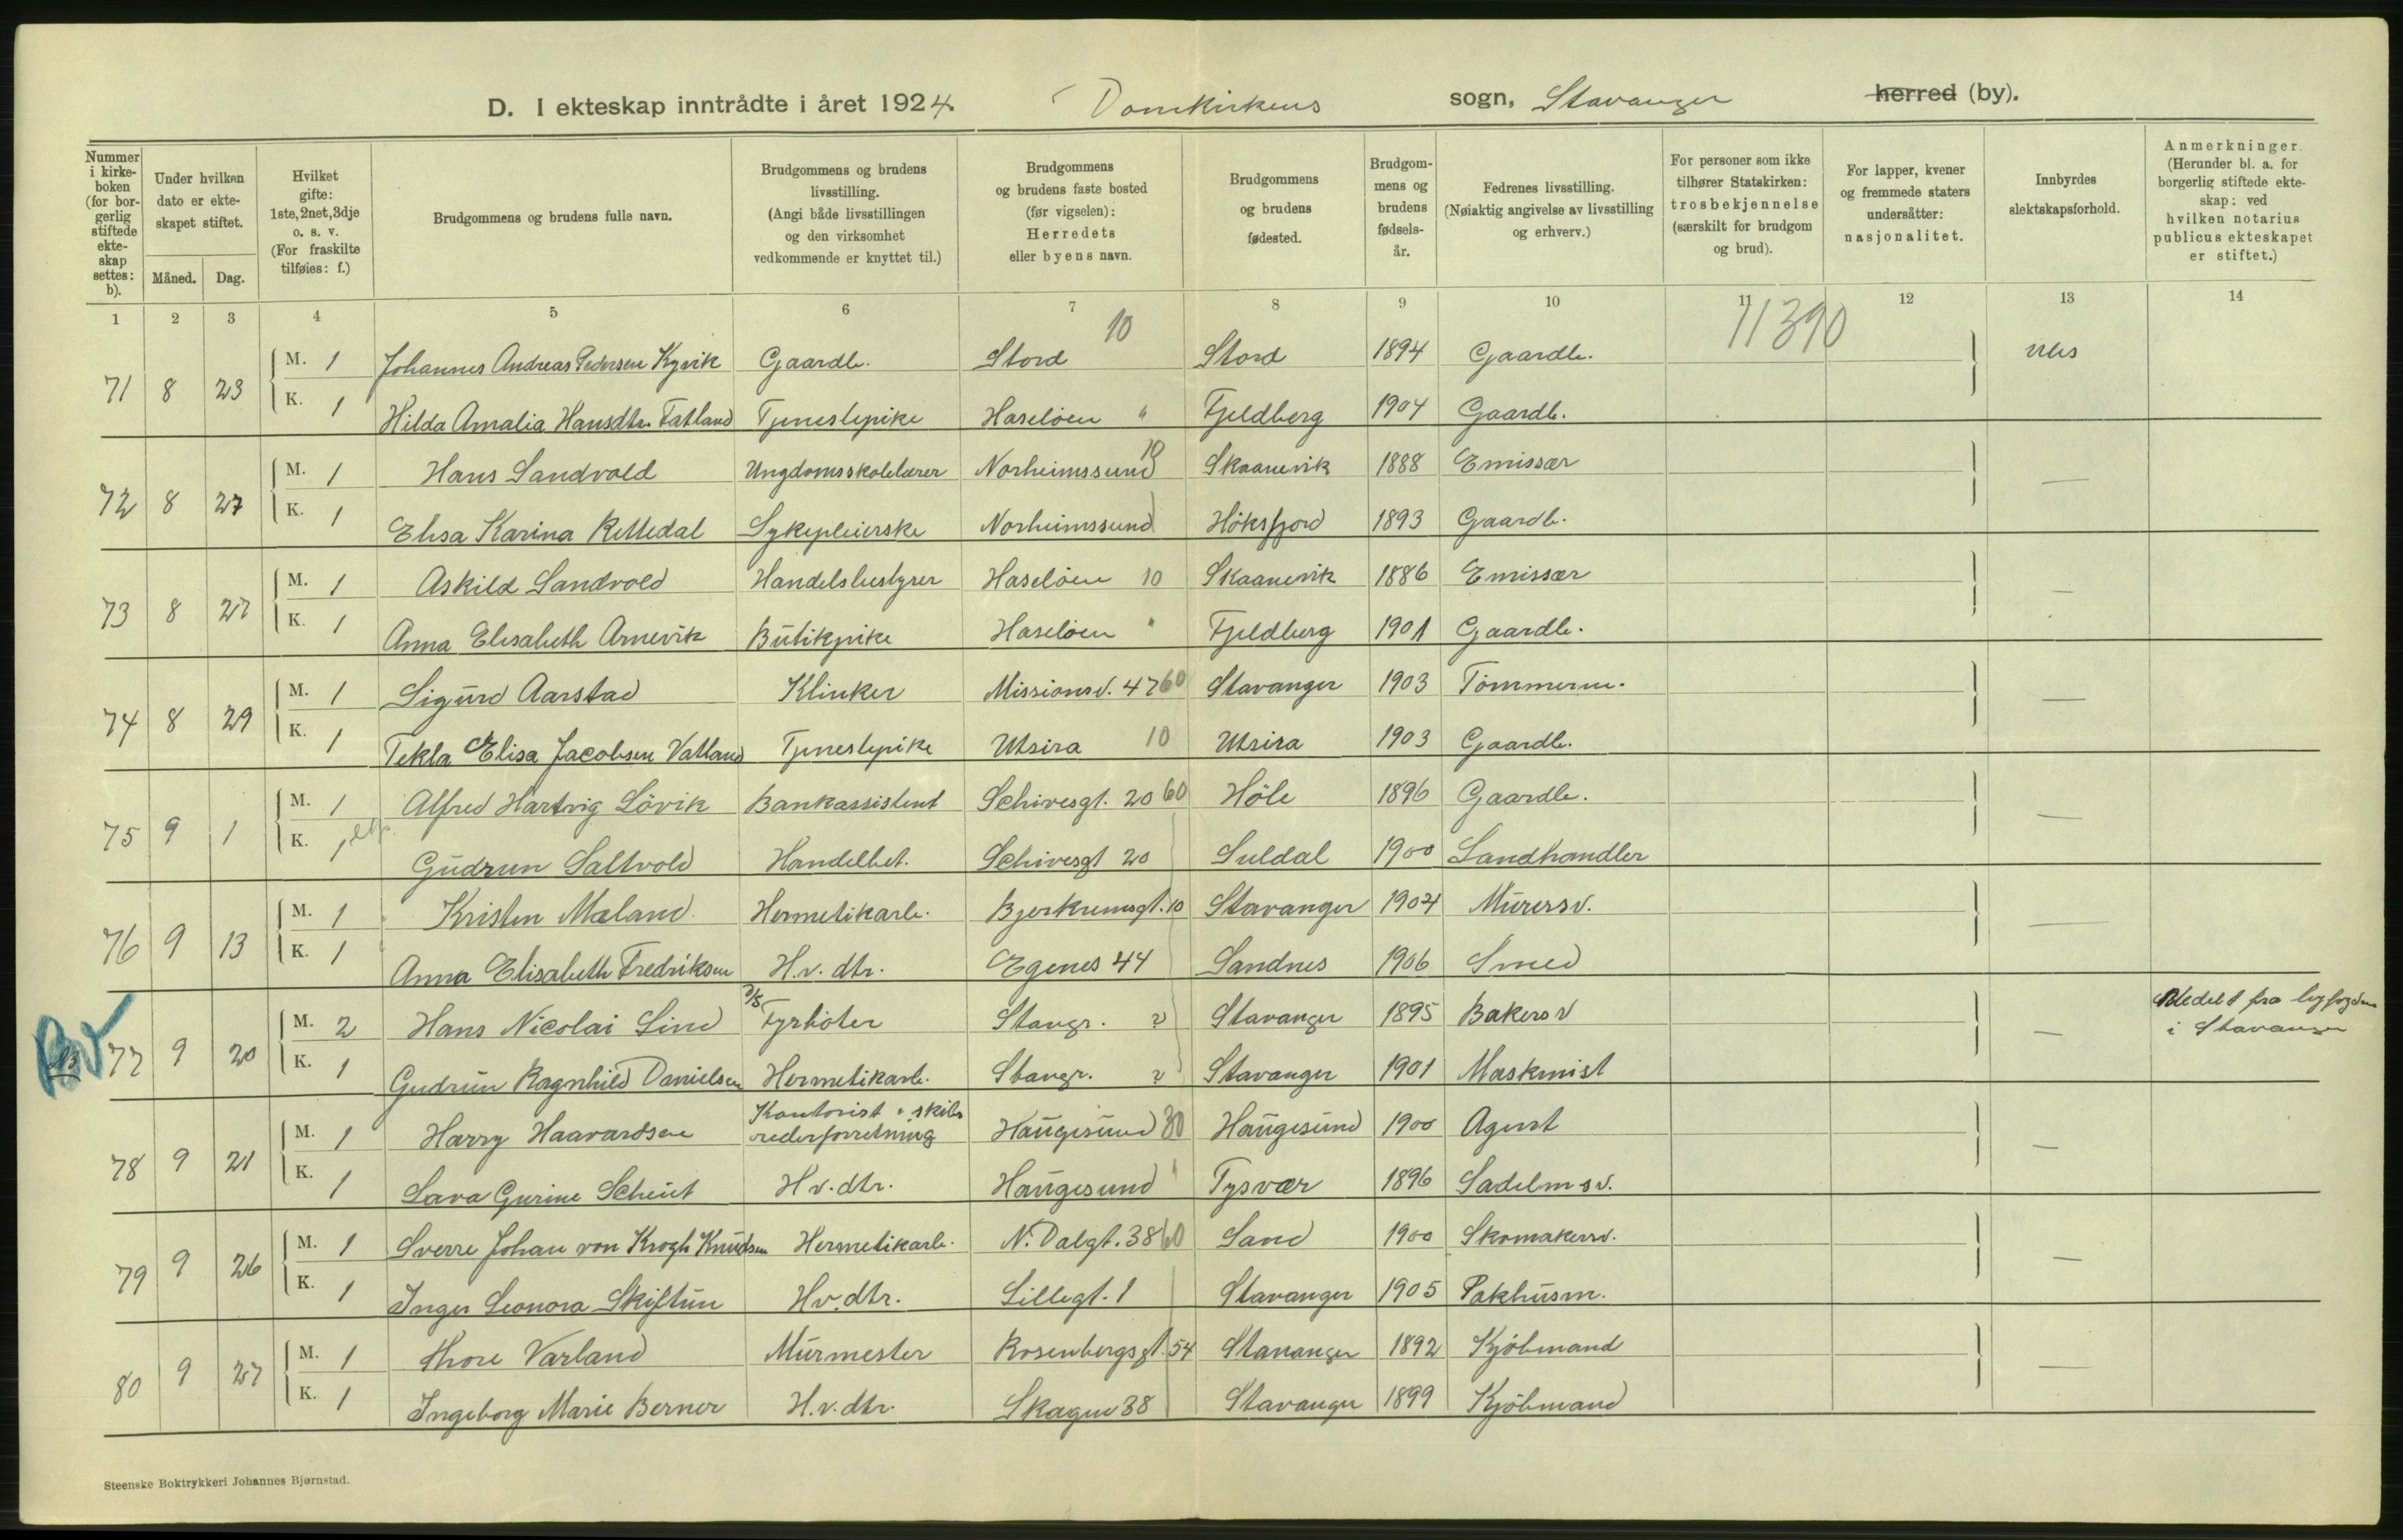 D. I ekteskap inntrådte i året 1924. Domkirkens sogn, Stavanger herred (by).
Nummer i kirke-boken (for bor-gerlig stiftede ekte-skap settes: b).
Under hvilken dato er ekte-skapet stiftet.
Måned. Dag.
Hvilket gifte: 1ste, 2net, 3dje o. s. v. (For fraskilte tilføies: f.)
Brudgommens og brudens fulle navn.
Brudgommens og brudens livsstilling. (Angi både livsstillingen og den virksomhet vedkommende er knyttet til.)
Brudgommens og brudens faste bosted (før vigselen): Herredets eller byens navn.
Brudgommens og brudens fødested.
Brudgom-mens og brudens fødsels-år.
Fedrenes livsstilling. (Nøiaktig angivelse av livsstilling og erhverv.)
For personer som ikke tilhører Statskirken: trosbekjennelse (særskilt for brudgom og brud).
For lapper, kvener og fremmede staters undersåtter: nasjonalitet.
Innbyrdes slektskapsforhold.
Anmerkninger. (Herunder bl. a. for borgerlig stiftede ekte-skap: ved hvilken notarius publicus ekteskapet er stiftet.)
1 2 3 4 5 6 7 8 9 10 11 12 13 14
10 11390
71 8 23 M. 1 Johannes Andreas Pedersen Kyvik Gaardb. Stord Stord 1894 Gaardb.
K. 1 Hilda Amalia Hansdtr. Tatland Tjenestepike Haseløen " Fjeldberg 1904 Gaardb.
72 8 27 M. 1 Hans Sandvold Ungdomsskolelærer Norheimssund 10 Skaanevik 1888 Emissær —
K. 1 Elisa Karina Rettedal Sykepleierske Norheimssund Høksfjord 1893 Gaardb.
73 8 27 M. 1 Askild Sandvold Handelsbestyrer Haseløen 10 Skaanevik 1886 Emissær —
K. 1 Anna Elisabeth Arnevik Butikpike Haseløen " Fjeldberg 1901 Gaardb.
74 8 29 M. 1 Sigurd Aarstad Klinker Missionsv. 47 60 Stavanger 1903 Tømmerm. —
K. 1 Tekla Elisa Jacobsen Vatland Tjenestepike Utsira 10 Utsira 1903 Gaardb.
75 9 1 M. 1 Alfred Hartvig Løvik Bankassistent Schivesgt. 20 60 Høle 1896 Gaardb. —
K. 1 Gudrun Saltvold Handelbet. Schivesgt 20 Suldal 1900 Landhandler
76 9 13 M. 1 Kristen Mæland Hermetikarb. Bjerkremsgt. 10 Stavanger 1904 Murersv. —
K. 1 Anna Elisabeth Fredriksen H.v. dtr. Egenes 44 Sandnes 1906 Smed
77 9 20 M. 2 Hans Nicolai Lind D/S Fyrbøter Stavgr. ? Stavanger 1895 Bakersv — Medelt fra byfogden
i Stavanger
K. 1 Gudrun Ragnhild Danielsen Hermetikarb. Stavgr. ? Stavanger 1901 Maskinist
78 9 21 M. 1 Harry Haavardsen Kontorist i skibs
rederforretning Haugesund 30 Haugesund 1900 Agent —
K. 1 Lava Gurine Scheut H v. dtr. Haugesund " Tysvær 1896 Sadelm sv.
79 9 26 M. 1 Sverre Johan von Krogh Knudsen Hermetikarb. N. Dalgt. 38 60 Sand 1900 Skomakersv. —
K. 1 Inger Leonora Skiftun Hv. dtr. Lillegt. 1 Stavanger 1905 Pakhusm.
80 9 27 M. 1 Thore Varland Murmester Rosenbergsgt. 54 Stavanger 1892 Kjøbmand —
K. 1 Ingeborg Marie Berner H.v. dtr. Skagen 38 Stavanger 1899 Kjøbmand
Steenske Boktrykkeri Johannes Bjørnstad.